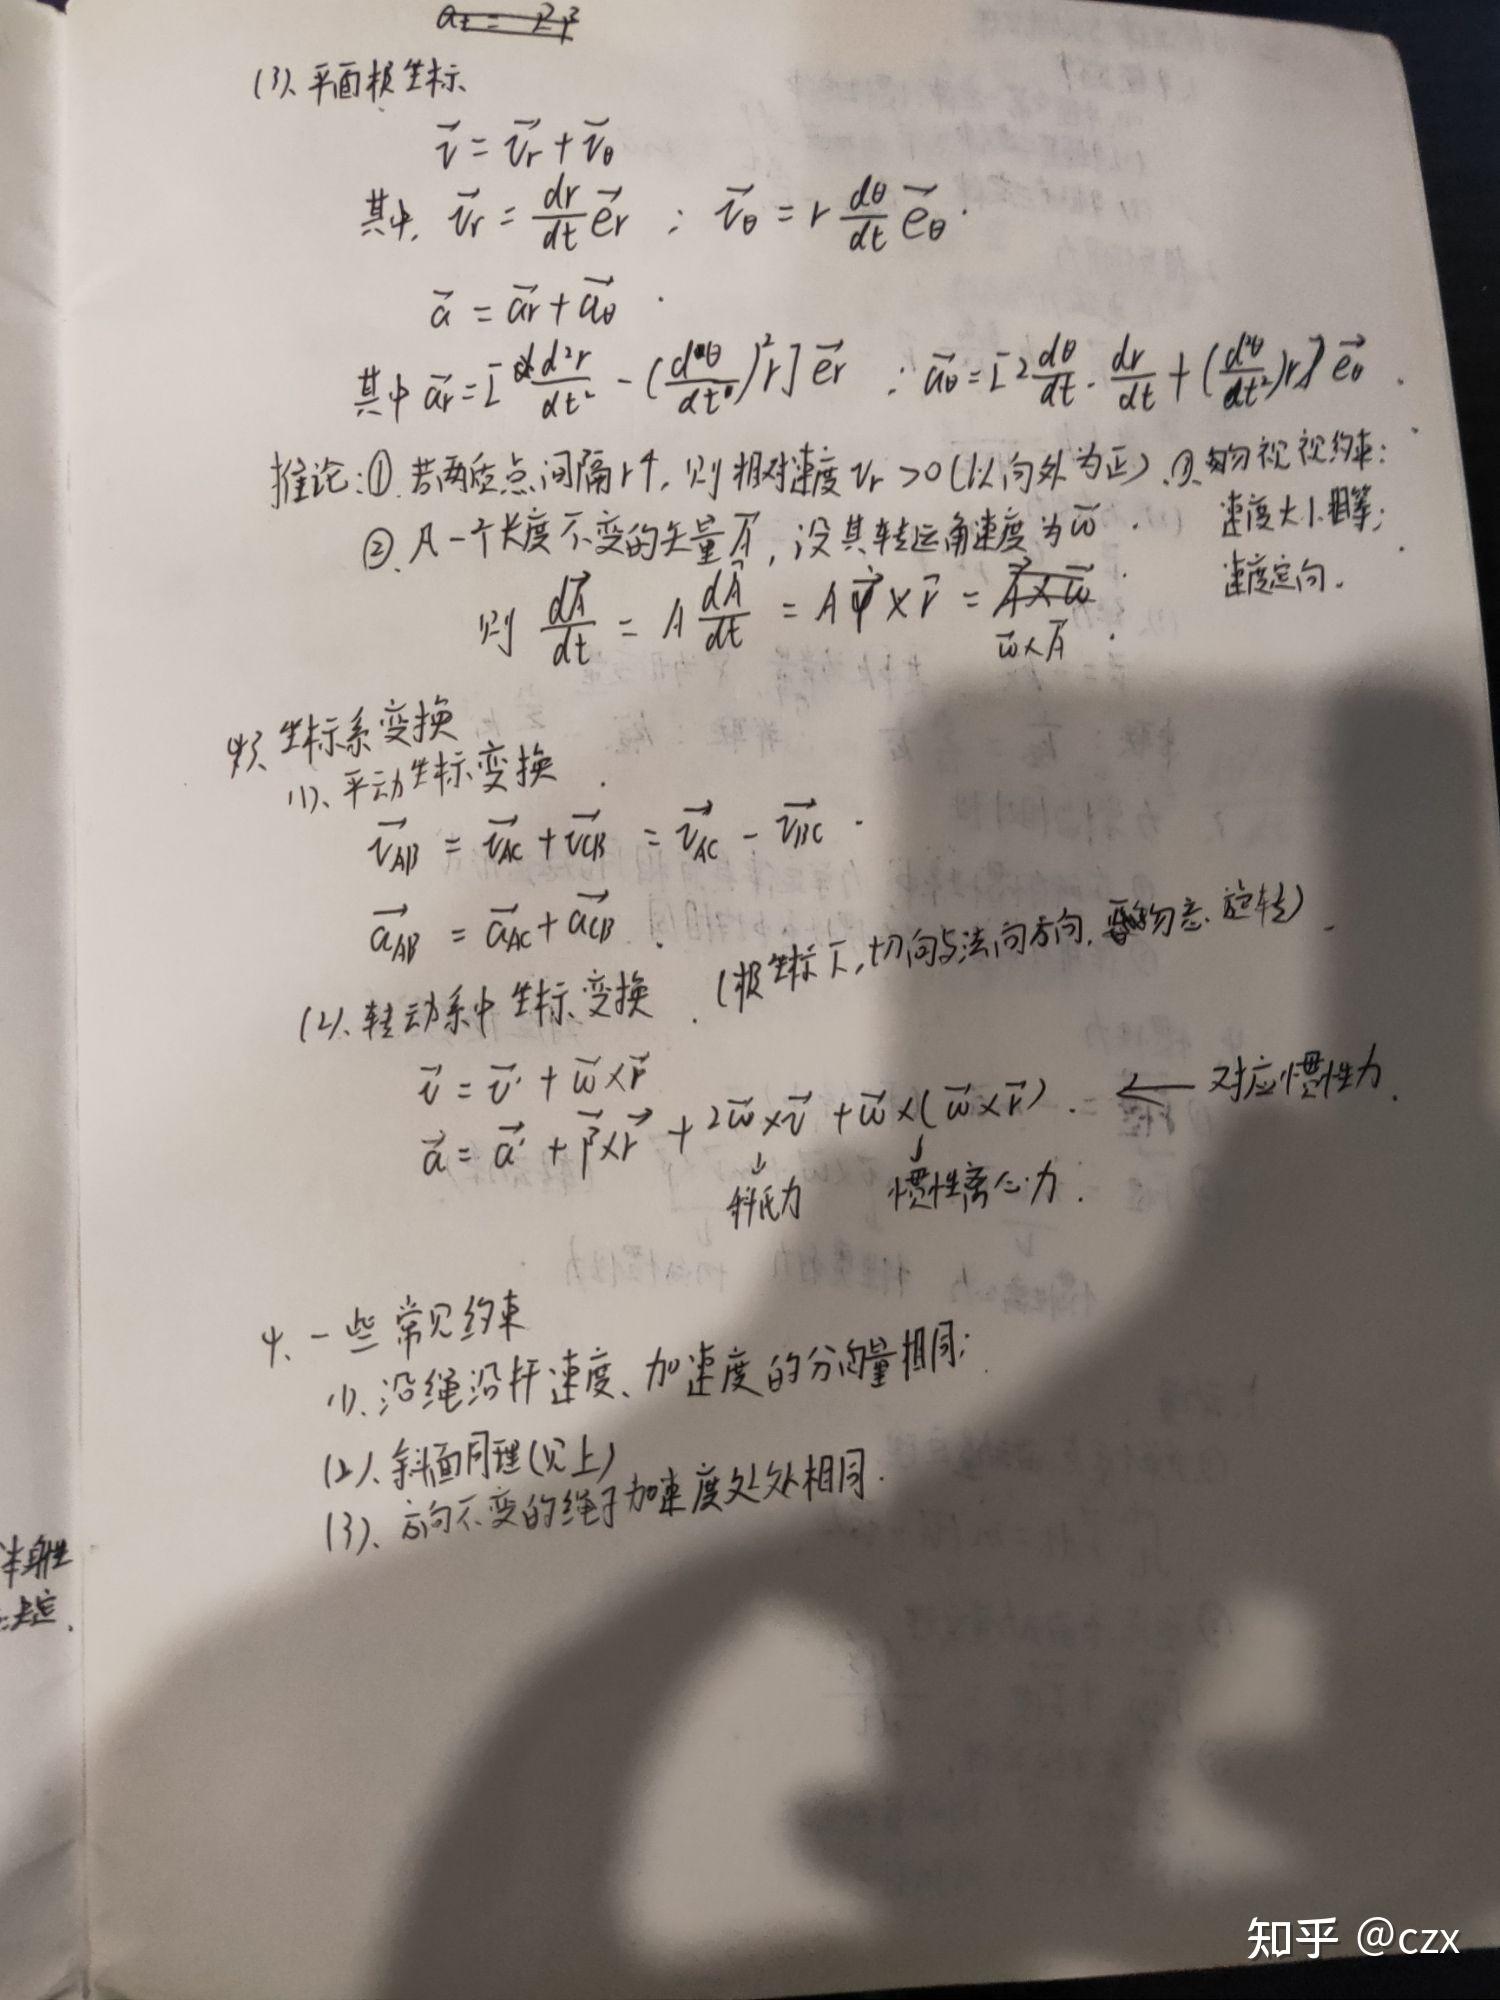 (3)、平面极坐标
v⃗ = v⃗r + v⃗θ
其中, v⃗r = dr/dt e⃗r ; v⃗θ = r dθ/dt e⃗θ.
a⃗ = a⃗r + a⃗θ.
其中 a⃗r = [d²r/dt² - (dθ/dt)²r] e⃗r ; a⃗θ = [2 dθ/dt · dr/dt + (d²θ/dt²)r] e⃗θ.
推论:①、若两质点间隔r↑, 则相对速度vr>0(以向外为正)、③、勿视视约束:
速度大小相等;
②、凡一个长度不变的矢量A⃗, 设其转运角速度为ω⃗.
速度定向.
则 dA⃗/dt = A dA⃗/dt = A φ⃗ × r⃗ = ω⃗×A⃗.
3、坐标系变换
(1)、平动坐标变换.
v⃗AB = v⃗AC + v⃗CB = v⃗AC - v⃗BC.
a⃗AB = a⃗AC + a⃗CB.
(2)、转动系中坐标变换. (极坐标下,切向与法向方向, 勿忘旋转).
v⃗ = v⃗' + ω⃗×r⃗
a⃗ = a⃗' + β⃗×r⃗ + 2ω⃗×v⃗ + ω⃗×(ω⃗×r⃗). ← 对应惯性力.
↓ ↓
科氏力 惯性离心力.
4、一些常见约束
(1)、沿绳沿杆速度、加速度的分向量相同;
(2)、斜面同理(见上)
(3)、方向不变的绳子加速度处处相同.
知乎 @czx